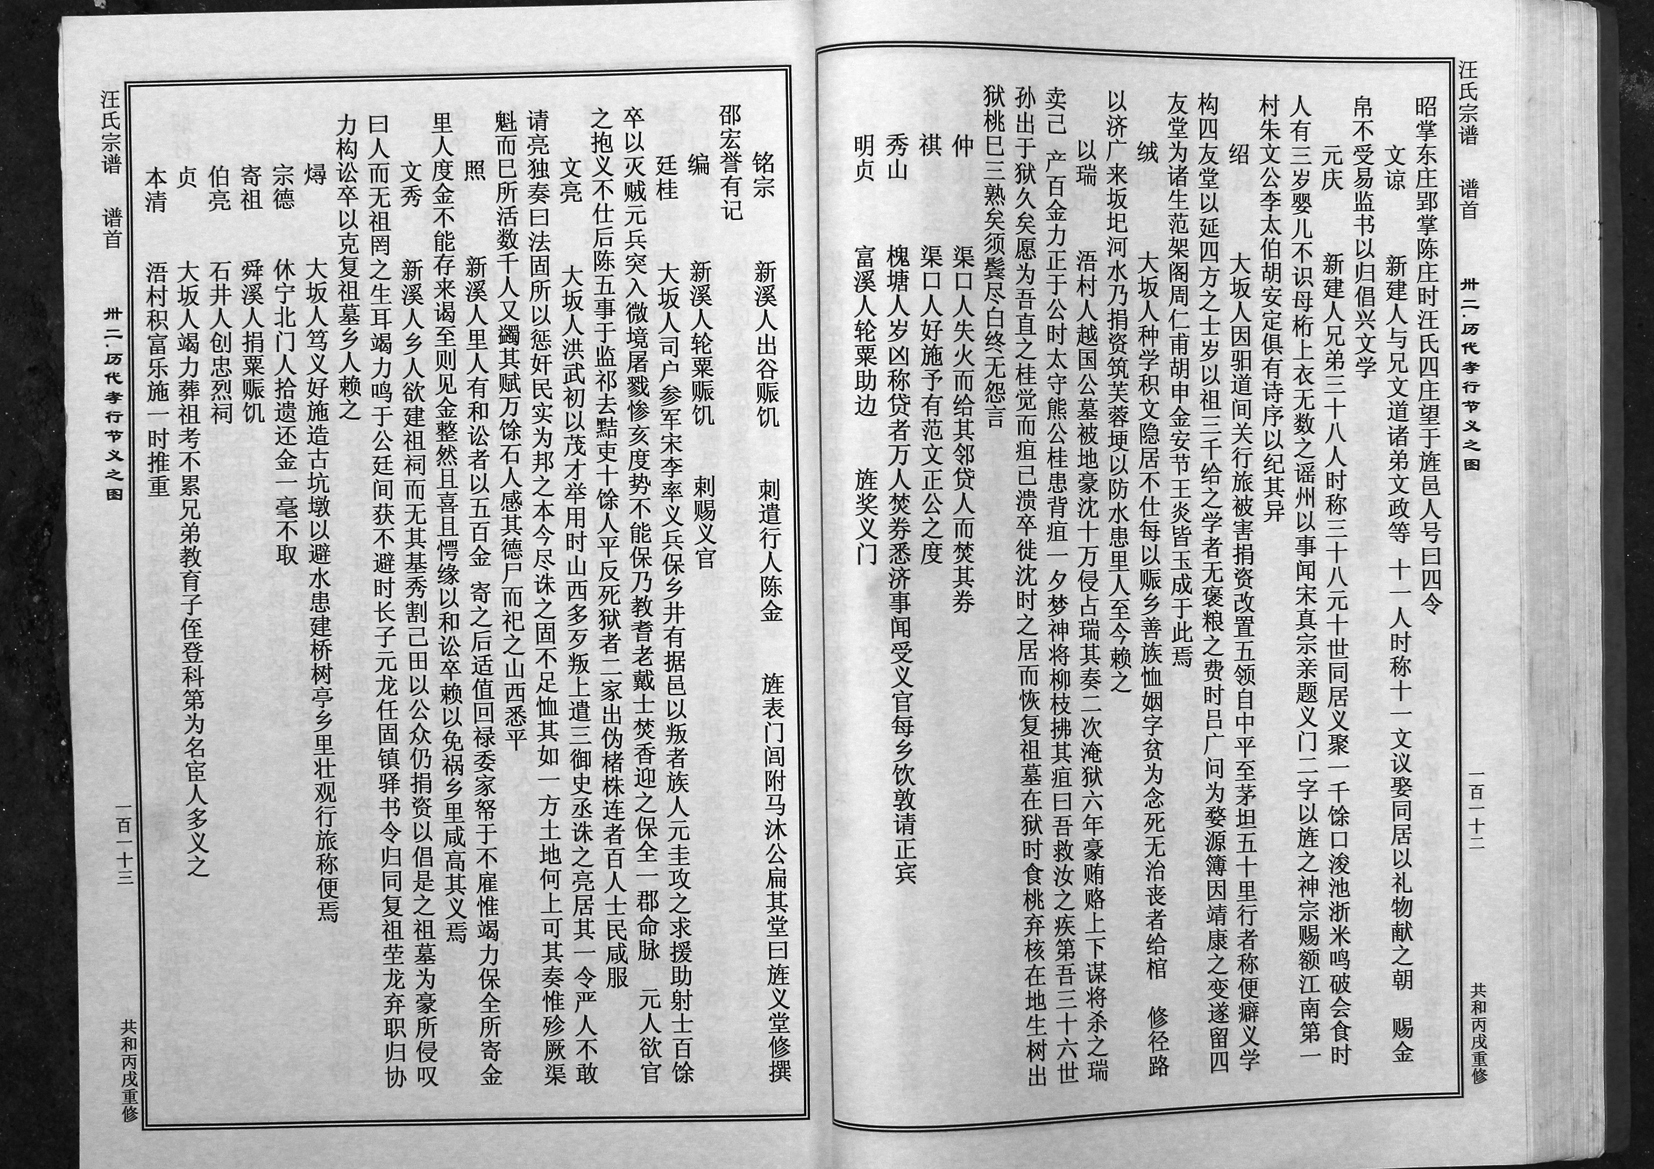 汪氏宗谱 谱首 卅二·历代孝行节义之图 一百一十二 共和丙戌重修
昭掌东庄郢掌陈庄时汪氏四庄望于旌邑人号曰四令
文谅 新建人与兄文道诸弟文政等 十一人时称十一文议娶同居以礼物献之朝 赐金
帛不受易监书以归倡兴文学
元庆 新建人兄弟三十八人时称三十八元十世同居义聚一千馀口浚池浙米鸣破会食时
人有三岁婴儿不识母桁上衣无数之谣州以事闻宋真宗亲题义门二字以旌之神宗赐额江南第一
村朱文公李太伯胡安定俱有诗序以纪其异
绍 大坂人因驲道间关行旅被害捐资改置五领自中平至茅坦五十里行者称便癖义学
构四友堂以延四方之士岁以祖三千给之学者无褒粮之费时吕广问为婺源簿因靖康之变遂留四
友堂为诸生范架阁周仁甫胡申金安节王炎皆玉成于此焉
绒 大坂人种学积文隐居不仕每以赈乡善族恤姻字贫为念死无治丧者给棺 修径路
以济广来坂圯河水乃捐资筑芙蓉埂以防水患里人至今赖之
以瑞 浯村人越国公墓被地豪沈十万侵占瑞其奏二次淹狱六年豪贿赂上下谋将杀之瑞
卖己 产百金力正于公时太守熊公桂患背疽一夕梦神将柳枝拂其疽曰吾救汝之疾第吾三十六世
孙出于狱久矣愿为吾直之桂觉而疽已溃卒徙沈时之居而恢复祖墓在狱时食桃弃核在地生树出
狱桃巳三熟矣须鬓尽白终无怨言
仲 渠口人失火而给其邻贷人而焚其券
祺 渠口人好施予有范文正公之度
秀山 槐塘人岁凶称贷者万人焚券悉济事闻受义官每乡饮敦请正宾
明贞 富溪人轮粟助边 旌奖义门
铭宗 新溪人出谷赈饥 刺遣行人陈金 旌表门闾附马沐公扁其堂曰旌义堂修撰
邵宏誉有记
编 新溪人轮粟赈饥 刺赐义官
廷桂 大坂人司户参军宋李率义兵保乡井有据邑以叛者族人元圭攻之求援助射士百馀
卒以灭贼元兵突入微境屠戮惨亥度势不能保乃教耆老戴士焚香迎之保全一郡命脉 元人欲官
之抱义不仕后陈五事于监祁去黠吏十馀人平反死狱者二家出伪楮株连者百人士民咸服
文亮 大坂人洪武初以茂才举用时山西多歹叛上遣三御史丞诛之亮居其一令严人不敢
请亮独奏曰法固所以惩奸民实为邦之本今尽诛之固不足恤其如一方土地何上可其奏惟殄厥渠
魁而巳所活数千人又蠲其赋万馀石人感其德尸而祀之山西悉平
照 新溪人里人有和讼者以五百金 寄之后适值回禄委家帑于不雇惟竭力保全所寄金
里人度金不能存来谒至则见金整然且喜且愕缘以和讼卒赖以免祸乡里咸高其义焉
文秀 新溪人乡人欲建祖祠而无其基秀割己田以公众仍捐资以倡是之祖墓为豪所侵叹
曰人而无祖罔之生耳竭力鸣于公廷间获不避时长子元龙任固镇驿书令归同复祖茔龙弃职归协
力构讼卒以克复祖墓乡人赖之
燖 大坂人笃义好施造古坑墩以避水患建桥树亭乡里壮观行旅称便焉
宗德 休宁北门人拾遗还金一毫不取
寄祖 舜溪人捐粟赈饥
伯亮 石井人创忠烈祠
贞 大坂人竭力葬祖考不累兄弟教育子侄登科第为名宦人多义之
本清 浯村积富乐施一时推重
汪氏宗谱 谱首 卅二·历代孝行节义之图 一百一十三 共和丙戌重修